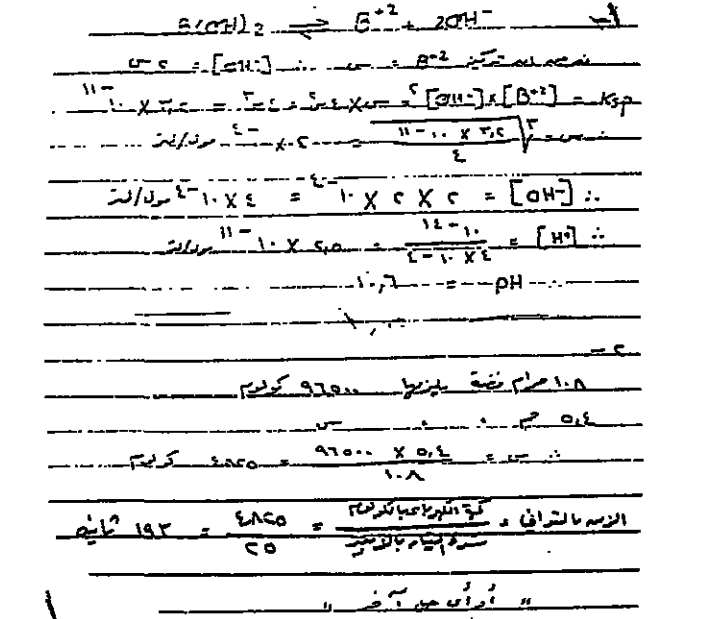 ١- B(OH)2 ⇌ B+2 + 2OH-
نفرض أن تركيز B+2 = س ∴ [OH-] = ٢ س
Ksp = [B+2] × [OH-]٢ = س × ٤ س٢ = ٤ س٣ = ٣,٢ × ١٠-١١
∴ س = ٣√(٣,٢ × ١٠-١١ / ٤) = ٢ × ١٠-٤ مول/لتر
∴ [OH-] = ٢ × ٢ × ١٠-٤ = ٤ × ١٠-٤ مول/لتر
∴ [H+] = ١٠-١٤ / ٤ × ١٠-٤ = ٢,٥ × ١٠-١١ مول/لتر
∴ pH = ١٠,٦
٢-
١٠٨ جرام فضة يلزمها ٩٦٥٠٠ كولوم
٥,٤ جم س
∴ س = ٥,٤ × ٩٦٥٠٠ / ١٠٨ = ٤٨٢٥ كولوم
الزمن بالثواني = كمية الكهربائى بالكولوم / شدة التيار بالأمبير = ٤٨٢٥ / ٢٥ = ١٩٣ ثانية
" أو أى حل آخر "